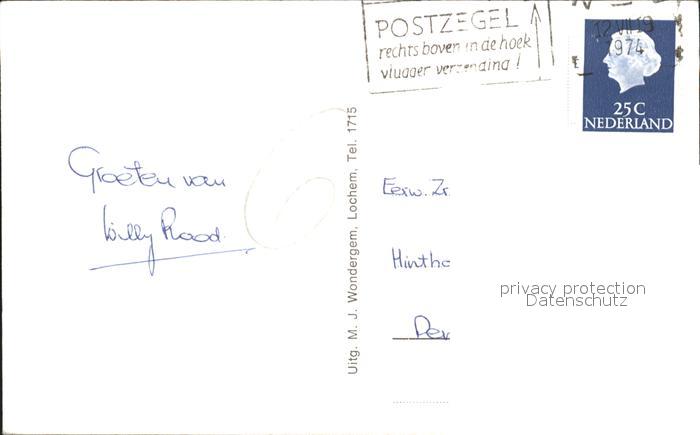 POSTZEGEL
rechts boven in de hoek
vlugger verzending!
12 VII 19
1974
25C
NEDERLAND
Groeten van
Willy Raad.
Uitg. M. J. Wondergem, Lochem, Tel. 1715
Eerw. Zr.
Hintho
Dev
privacy protection
Datenschutz